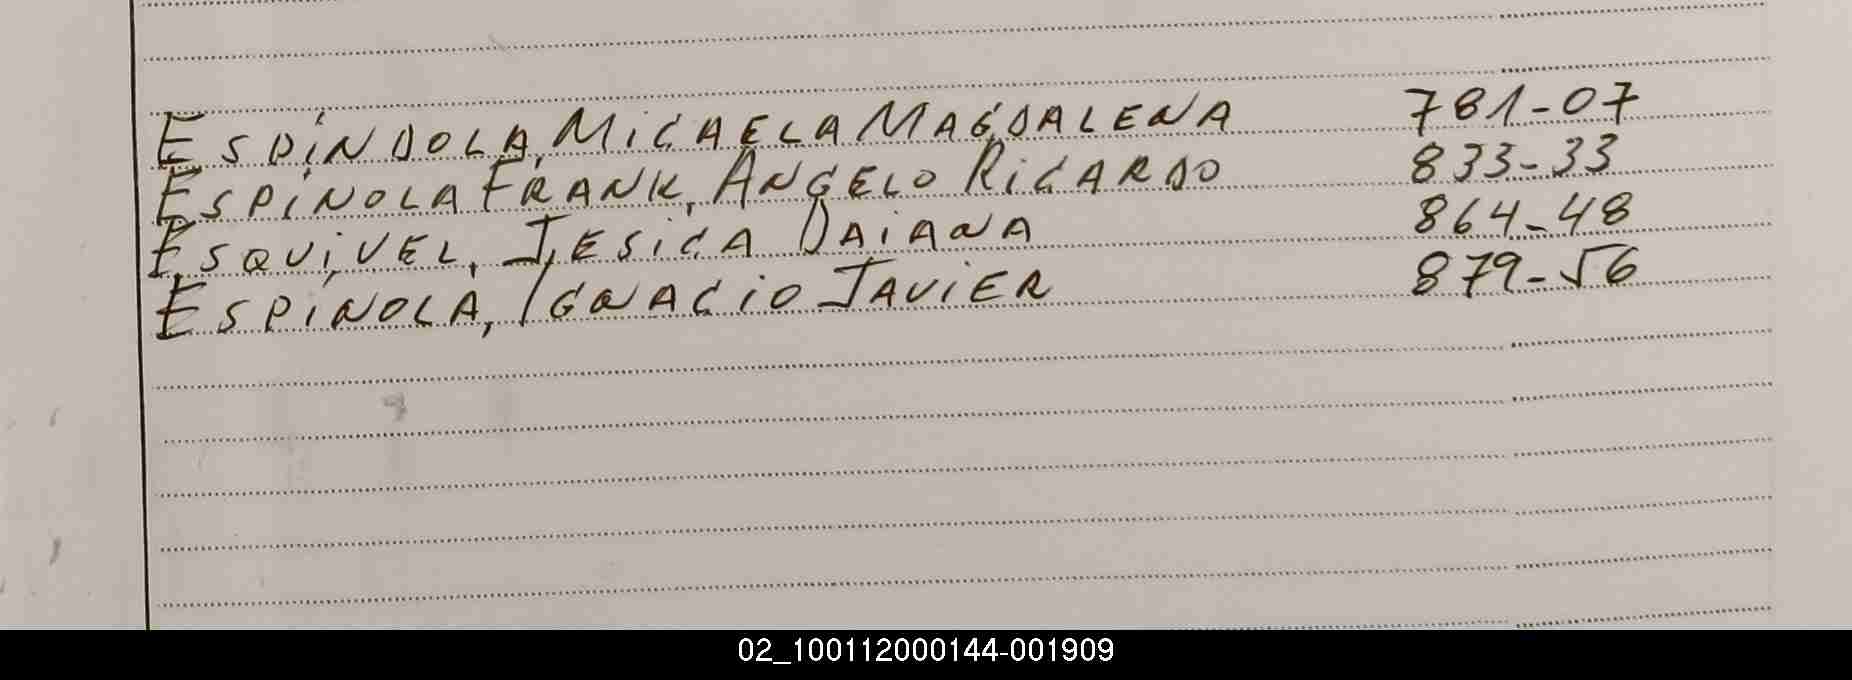 ESPÍNDOLA, MICAELA MAGDALENA 781-07
ESPÍNOLA FRANK, ANGELO RICARDO 833-33
ESQUIVEL, JESICA DAIANA 864-48
ESPÍNOLA, IGNACIO JAVIER 879-56
02_100112000144-001909